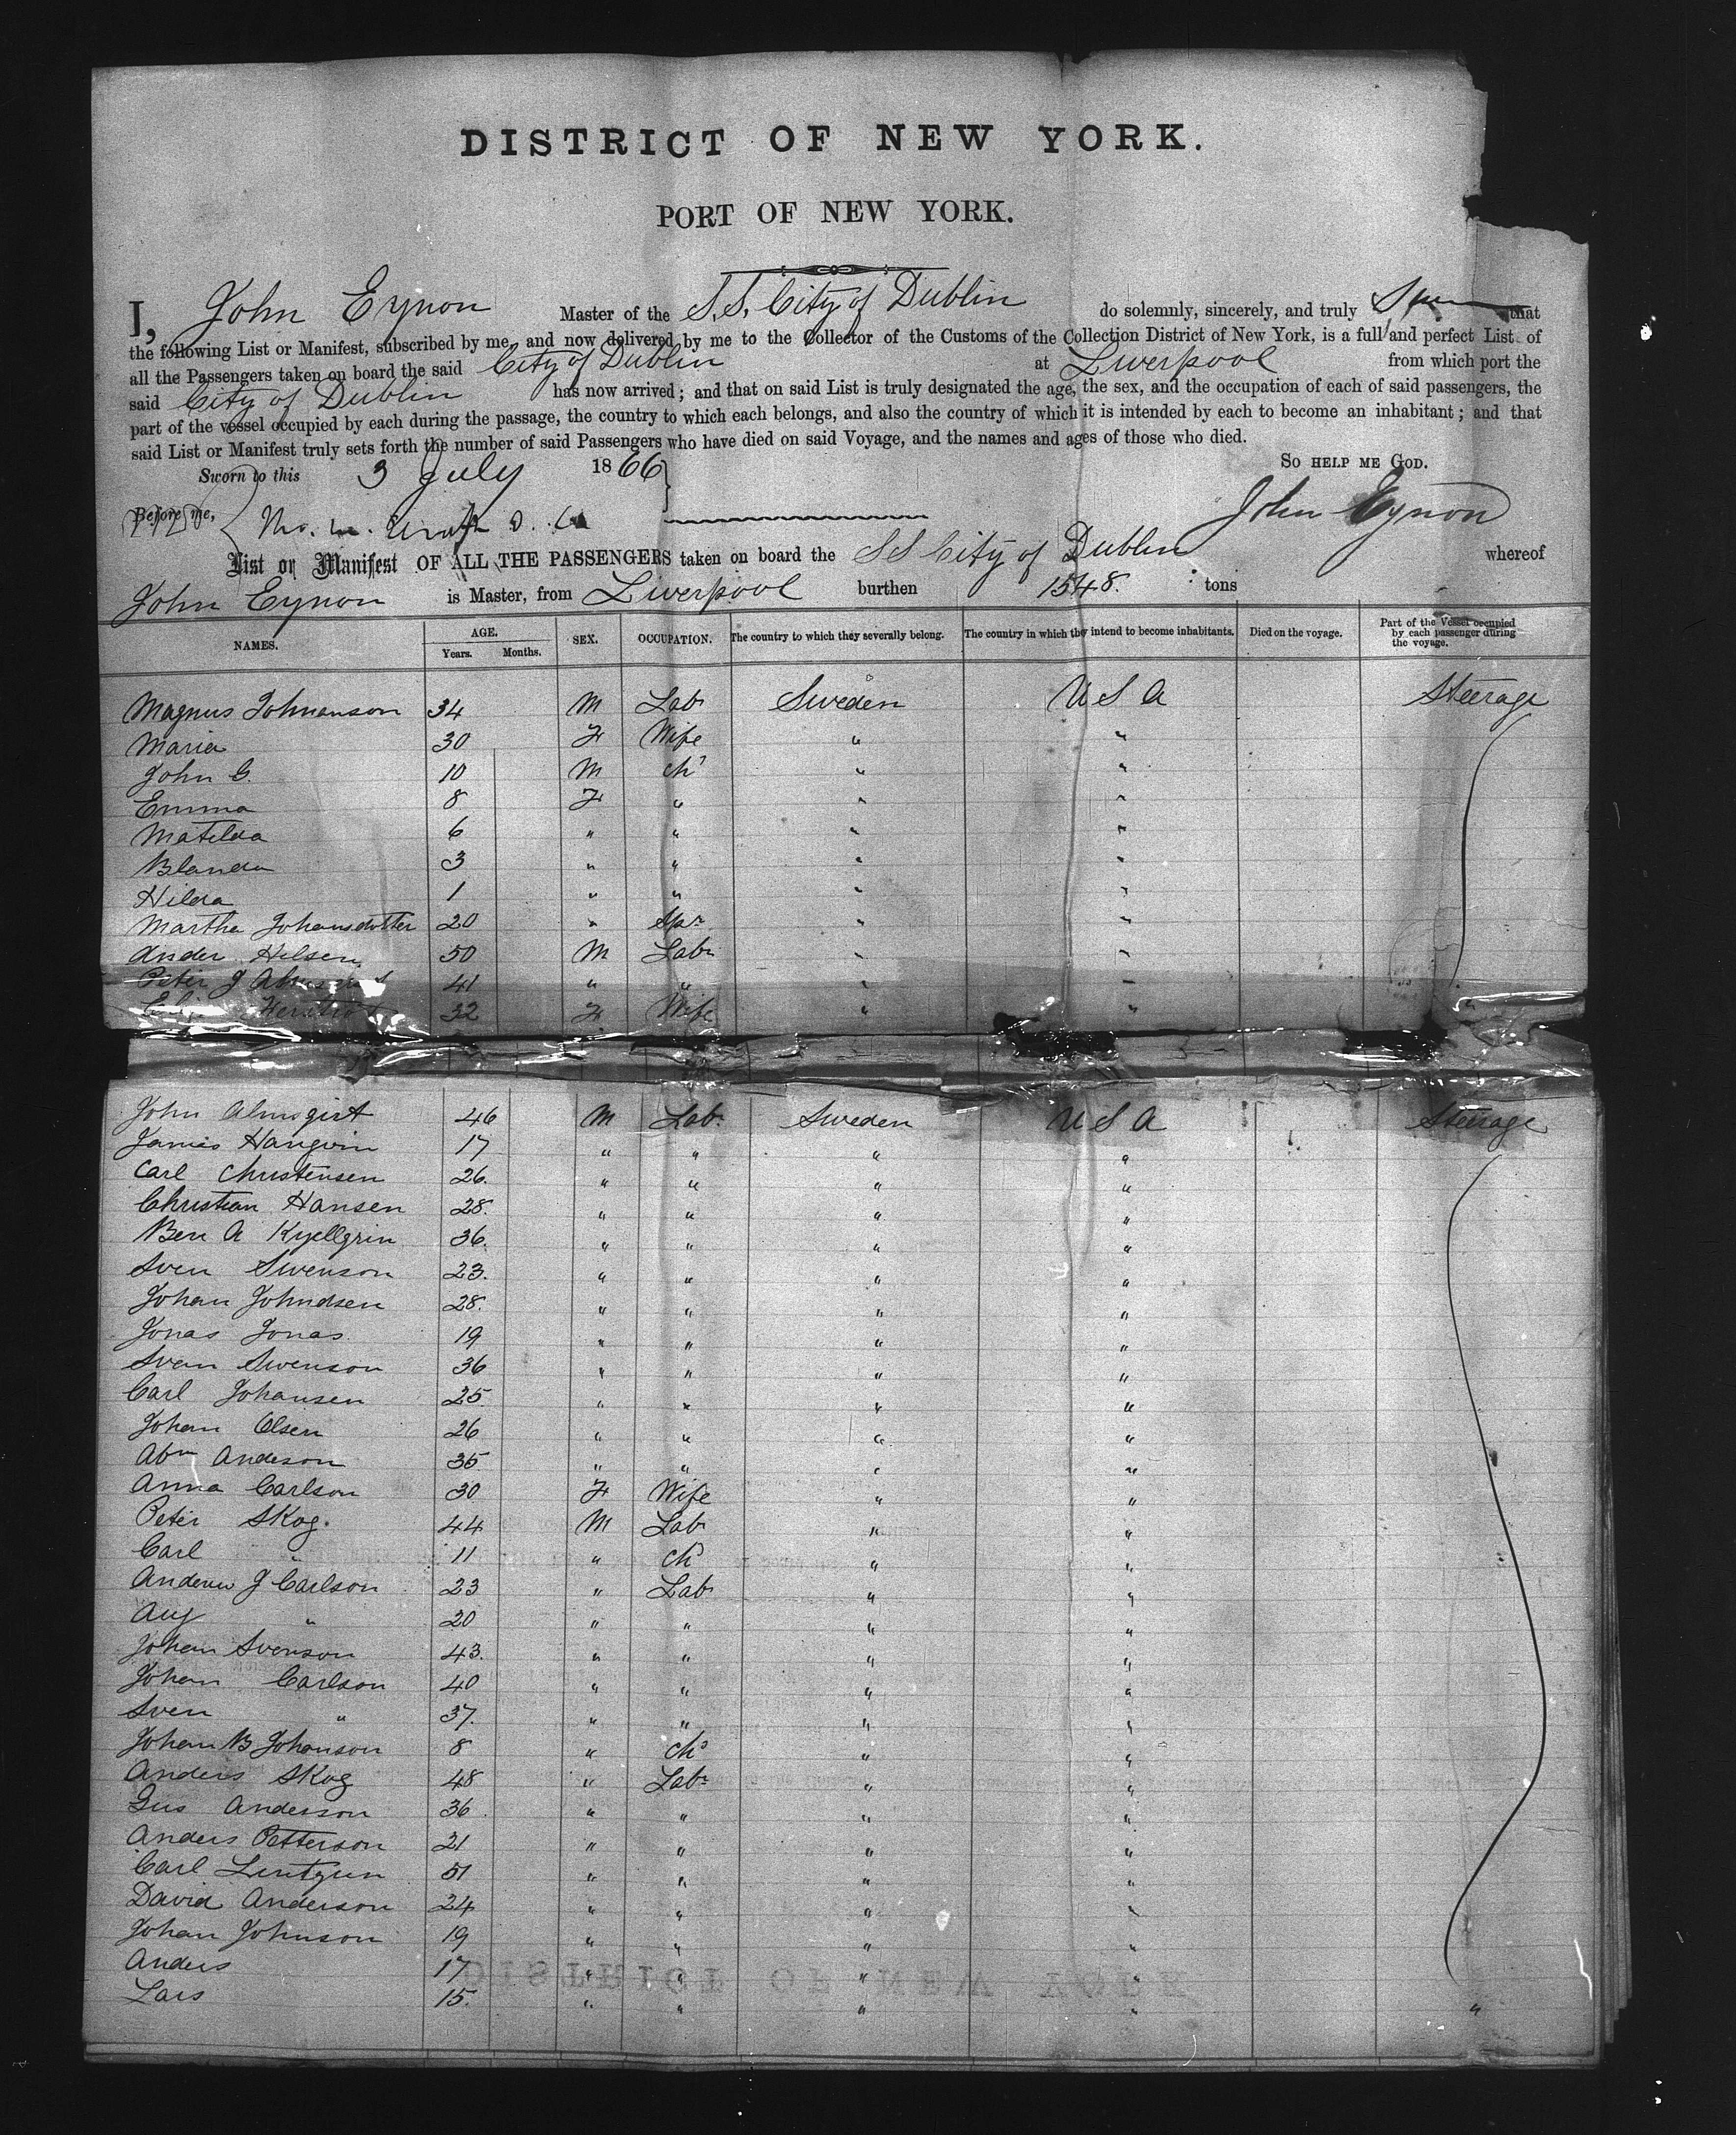 DISTRICT OF NEW YORK.
PORT OF NEW YORK.
I, John Eynon Master of the S.S. City of Dublin do solemnly, sincerely, and truly that
the following List or Manifest, subscribed by me, and now delivered by me to the Collector of the Customs of the Collection District of New York, is a full and perfect List of
all the Passengers taken on board the said City of Dublin at Liverpool from which port the
said City of Dublin has now arrived; and that on said List is truly designated the age, the sex, and the occupation of each of said passengers, the
part of the vessel occupied by each during the passage, the country to which each belongs, and also the country of which it is intended by each to become an inhabitant; and that
said List or Manifest truly sets forth the number of said Passengers who have died on said Voyage, and the names and ages of those who died.
Sworn to this 3 July 1866 SO HELP ME GOD.
Before me, John Eynon
List or Manifest OF ALL THE PASSENGERS taken on board the SS City of Dublin whereof
John Eynon is Master, from Liverpool burthen 1548. tons
NAMES. AGE. Years. Months. SEX. OCCUPATION. The country to which they severally belong. The country in which they intend to become inhabitants. Died on the voyage. Part of the Vessel occupied by each passenger during the voyage.
Magnus Johnanson 34 M Labr Sweden U S A Steerage
Maria 30 F Wife " "
John G. 10 M chd " "
Emma 8 F " " "
Matilda 6 " " " "
Blanda 3 " " " "
Hilda 1 " " " "
Martha Johansdotter 20 " Spr " "
Ander Hilsen 50 M Labr " "
Peter J 41 " " " "
32 F Wife " "
John Almsgirt 46 M Labr Sweden U S A Steerage
James Hangvin 17 " " " "
Carl Christensen 26. " " " "
Christian Hansen 28. " " " "
Ben A Kyellgrin 36. " " " "
Sven Swenson 23. " " " "
Johan Johndsen 28. " " " "
Jonas Jonas. 19 " " " "
Sven Swenson 36 " " " "
Carl Johansen 25. " " " "
Johan Olsen 26 " " " "
Abm Andeson 35 " " " "
Anna Carlson 30 F Wife " "
Peter Skog. 44 M Labr " "
Carl " 11 " chd " "
Andrew J Carlson 23 " Labr " "
Aug " 20 " " " "
Johan Svenson 43. " " " "
Johan Carlson 40 " " " "
Sven " 37. " " " "
Johan B Johanson 8 " chd " "
Anders Skog 48 " Labr " "
Gus Anderson 36. " " " "
Anders Petterson 21 " " " "
Carl Lintgun 51 " " " "
David Anderson 24 " " " "
Johan Johnson 19 " " " "
Anders 17 " " " "
Lars 15. " " " " "